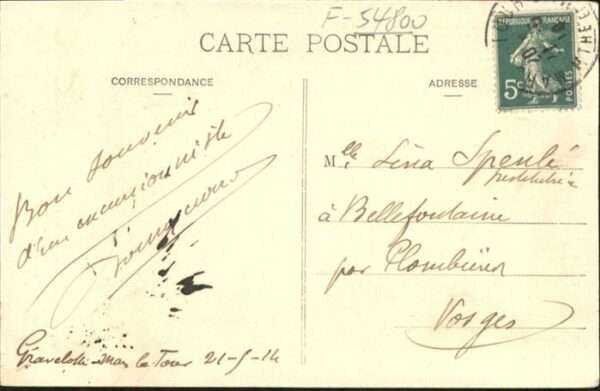 F-54800
CARTE POSTALE
CORRESPONDANCE
ADRESSE
RÉPUBLIQUE FRANÇAISE
5c
POSTES
Bon souvenir
d'un excursionniste
Mlle Léna Spenlé
à Bellefontaine
par Plombières
Vosges
Gravelotte Mars la Tour 21-5-14